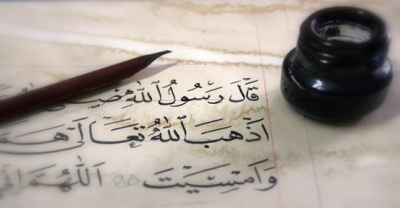 قَالَ رَسُولُ اللهِ
اَذْهَبَ اللهُ تَعَالَى
وَاَمْسَيْتَ اَللّٰهُمَّ